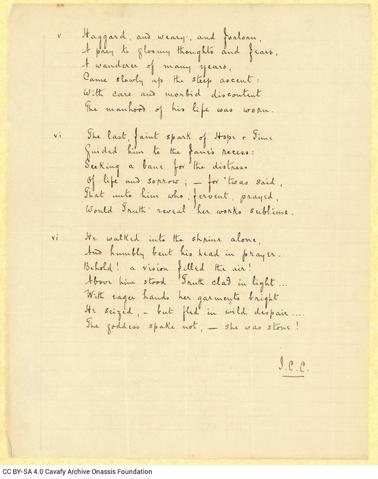 v Haggard, and weary, and forlorn,
A prey to gloomy thoughts and fears,
A wanderer of many years,
Came slowly up the steep ascent:
With care and morbid discontent
The manhood of his life was worn.
vi The last, faint spark of Hope & Time
Guided him to the fane's recess:
Seeking a bane for the distress
Of life and sorrow; – for 'twas said,
That unto him who, fervent, prayed,
Would Truth reveal her works sublime.
vi He walked into the shrine alone,
And humbly bent his head in prayer.
Behold! a vision filled the air!
Above him stood Truth clad in light...
With eager hands her garments bright
He seized, – but fled in wild despair....
The goddess spake not, – she was stone!
J.C.C.
CC BY-SA 4.0 Cavafy Archive Onassis Foundation